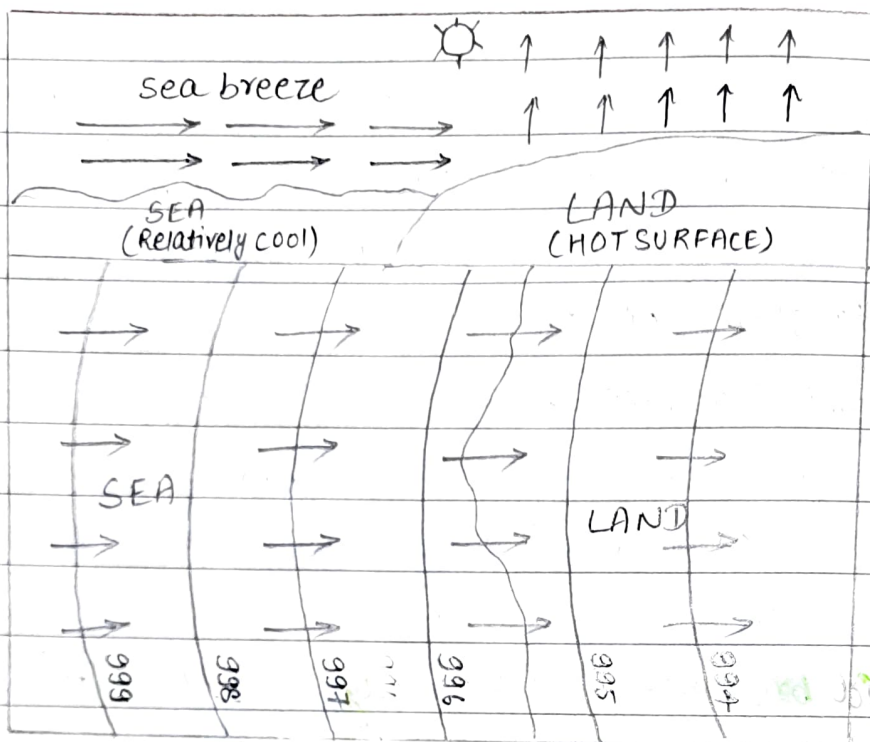 sea breeze
SEA
(Relatively cool)
LAND
(HOT SURFACE)
SEA
LAND
999
998
997
996
995
994